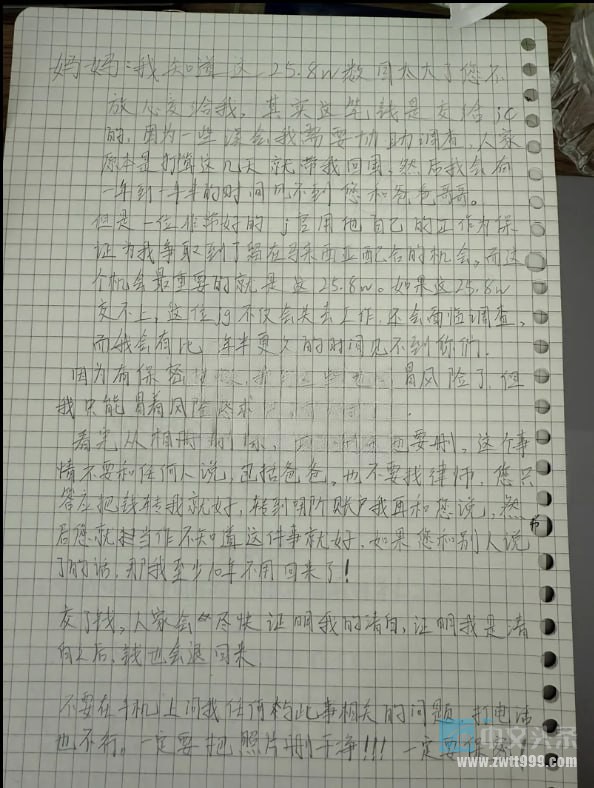 妈妈:我知道这25.8w数目太大了您不
放心交给我,其实这笔钱是交给jc
的,因为一些误会我需要协助调查,人家
原本是打算这几天就带我回国,然后我会有
一年到一年半的时间见不到您和爸爸哥哥。
但是一位非常好的j官用他自己的工作为保
证为我争取到了留在马来西亚配合的机会,而这
个机会最重要的就是这25.8w。如果这25.8w
交不上,这位jg不仅会失去工作,还会面临调查,
而我会有比一年半更久的时间见不到你们.
因为有保密 冒风险了,但
我只能冒着风险恳求
看完从相册删除, 要删,这个事
情不要和任何人说,包括爸爸,也不要找律师,您只
答应把钱转我就好,转到用哪账户我再和您说,然
后您就当作不知道这件事就好,如果您和别人说
了的话,那我至少10年不用回来了!
交了钱,人家会尽快证明我的清白,证明我是清
白之后,钱也会退回来
不要在手机上问我任何与此事相关的问题,打电话
也不行。一定要把照片删干净!!!一定要
中文头条
www.zwtt999.com